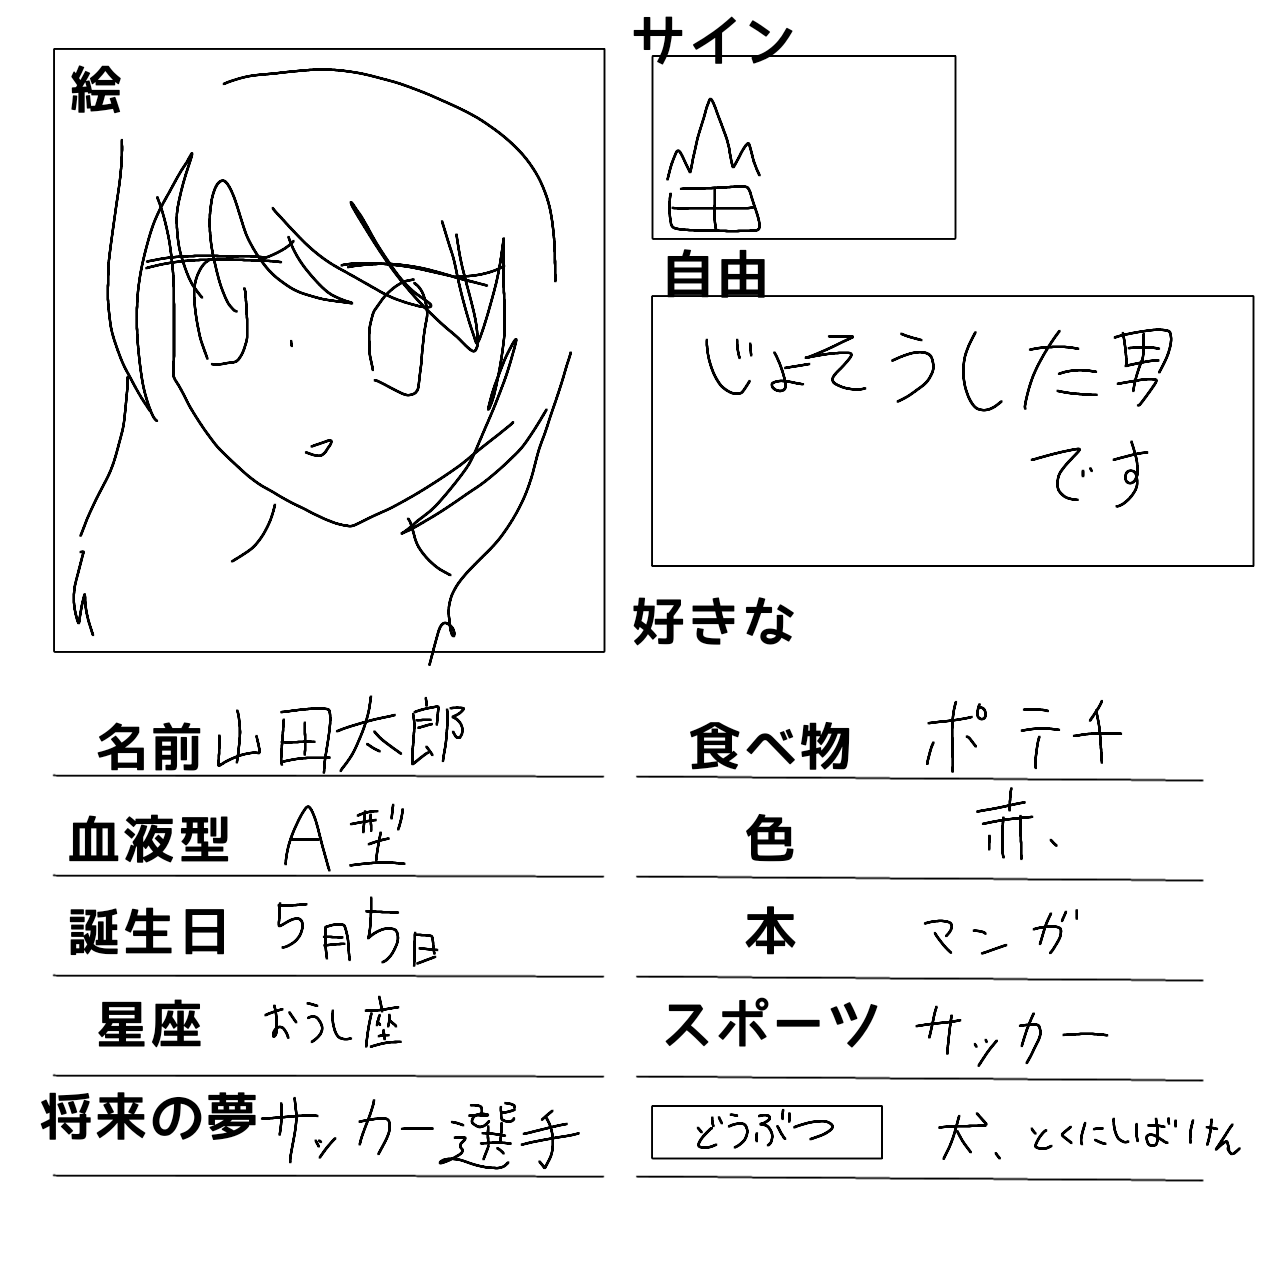 絵
サイン
自由
じょそうした男
です
好きな
名前 山田太郎
血液型 A型
誕生日 5月5日
星座 おうし座
将来の夢 サッカー選手
食べ物 ポテチ
色 赤、
本 マンガ
スポーツ サッカー
どうぶつ 犬、とくにしばけん